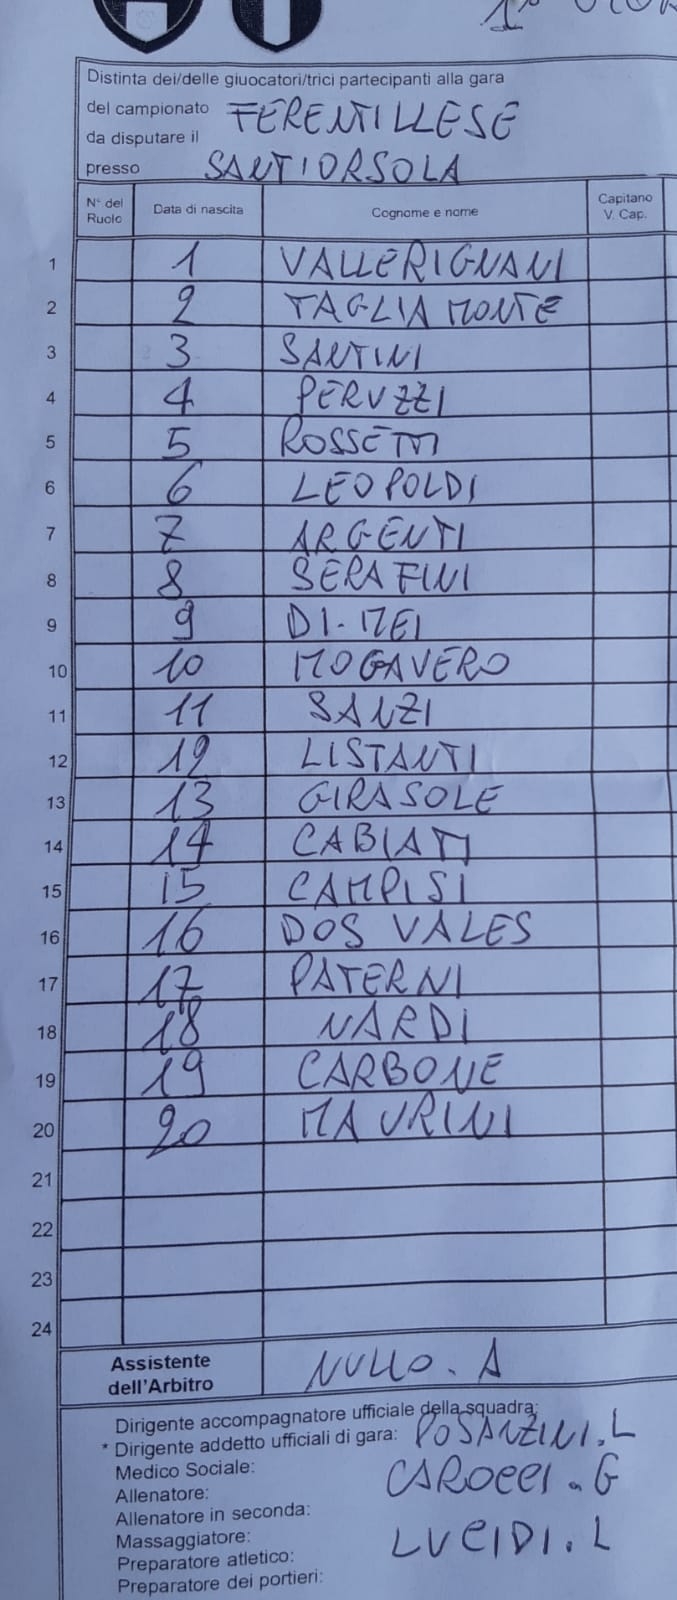 1°
Distinta dei/delle giuocatori/trici partecipanti alla gara
del campionato FERENTILLESE
da disputare il
presso SANTIORSOLA
N° del Ruolo Data di nascita Cognome e nome Capitano V. Cap.
1 1 VALLERIGNANI
2 2 TAGLIAMONTE
3 3 SANTINI
4 4 PERUZZI
5 5 ROSSETTI
6 6 LEOPOLDI
7 7 ARGENTI
8 8 SERAFINI
9 9 DI-MEI
10 10 MOGAVERO
11 11 SANZI
12 12 LISTANTI
13 13 GIRASOLE
14 14 CABIATI
15 15 CAMPISI
16 16 DOS VALES
17 17 PATERNI
18 18 NARDI
19 19 CARBONE
20 20 MAURINI
21
22
23
24
Assistente dell'Arbitro NULLO. A
Dirigente accompagnatore ufficiale della squadra:
* Dirigente addetto ufficiali di gara: POSANZINI. L
Medico Sociale:
Allenatore: CAROCCI. G
Allenatore in seconda:
Massaggiatore: LUCIDI. L
Preparatore atletico:
Preparatore dei portieri: